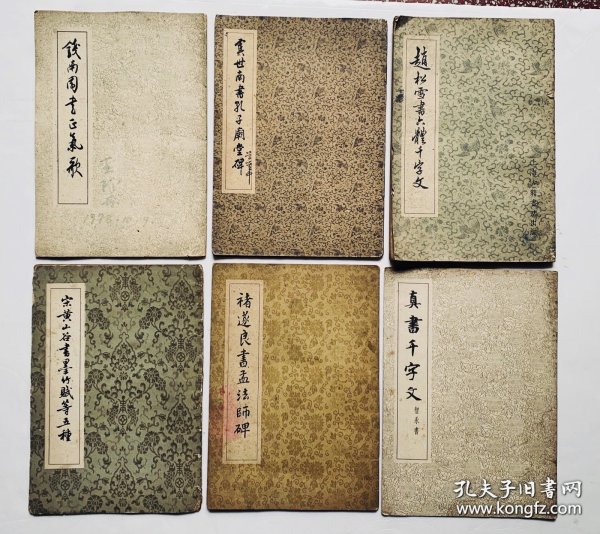 錢南園書正氣歌
虞世南書孔子廟堂碑
趙松雪書六體千字文
宋黃山谷書墨竹賦等五種
褚遂良書孟法師碑
真書千字文
智永書
孔夫子旧书网
www.kongfz.com